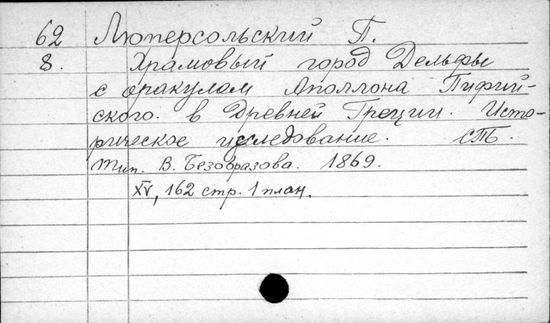 62 Люперсольский П.
8. Храмовый город Дельфы
с оракулом Аполлона Пифий-
ского в Древней Греции. Исто-
рическое исследование. СПб.
Тип. В. Безобразова. 1869.
XV, 162 стр. 1 план.